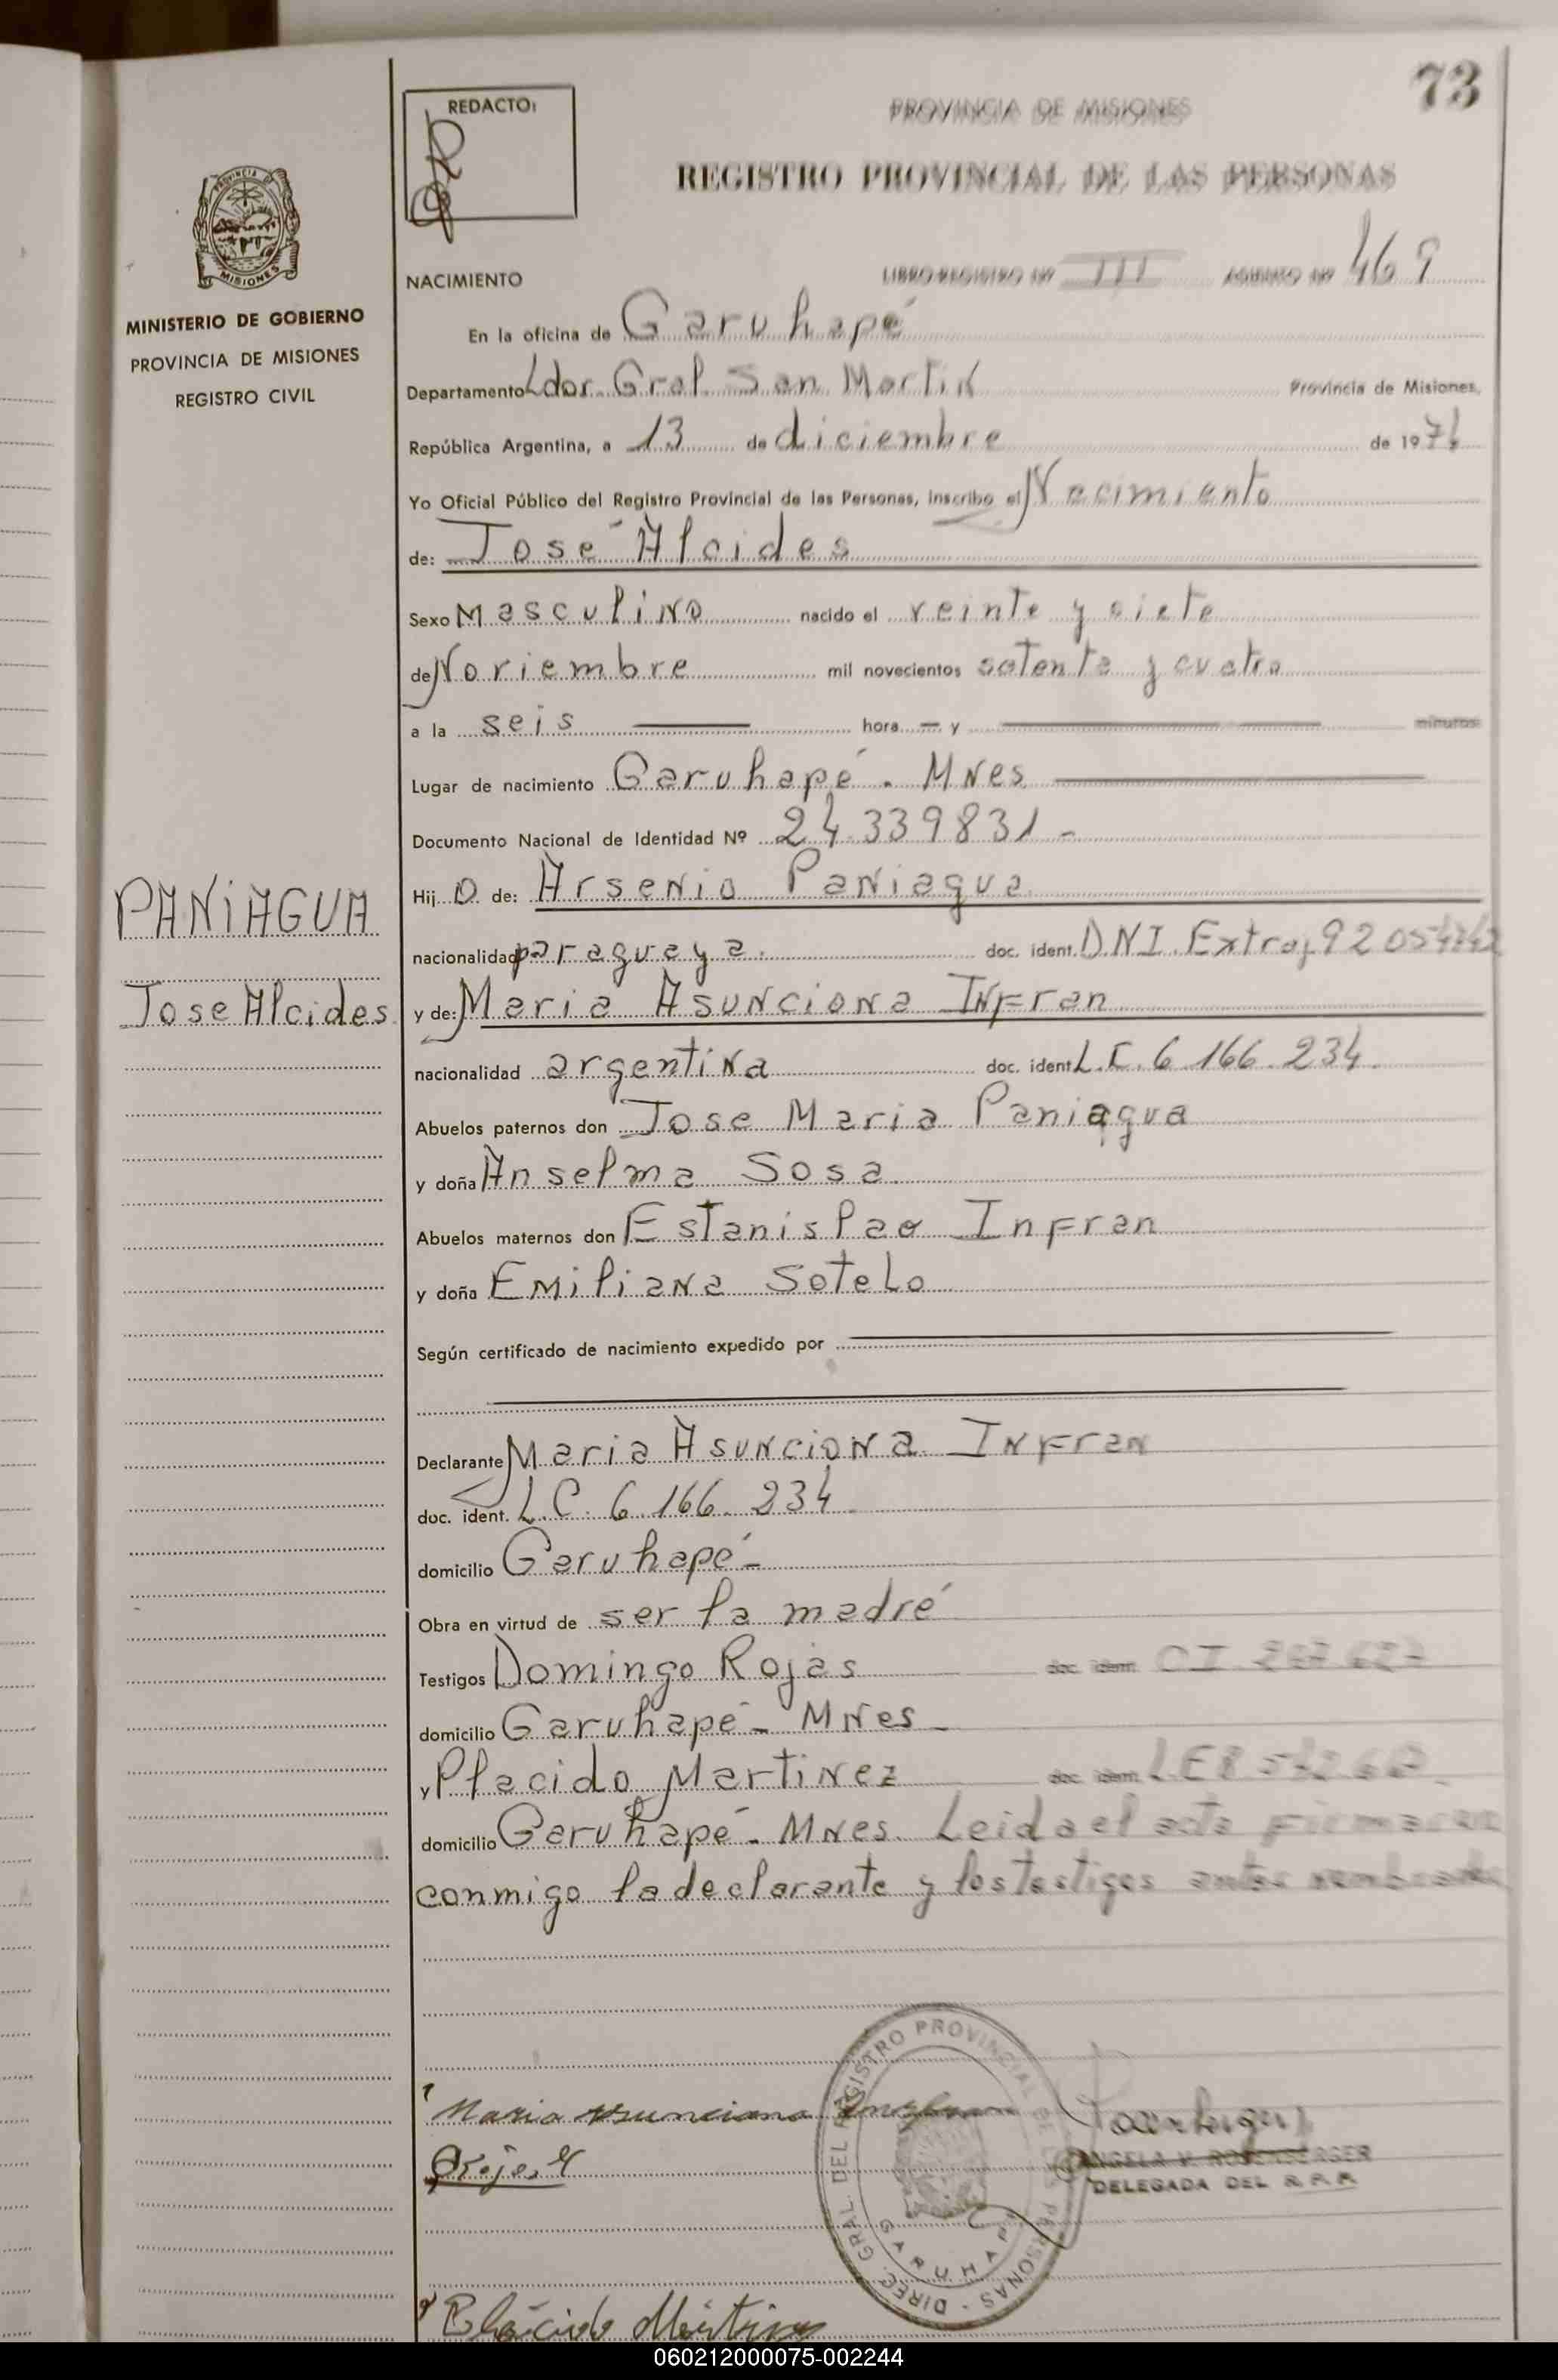 73
REDACTO:
PROVINCIA DE MISIONES
REGISTRO PROVINCIAL DE LAS PERSONAS
PROVINCIA DE
MISIONES
MINISTERIO DE GOBIERNO
PROVINCIA DE MISIONES
REGISTRO CIVIL
NACIMIENTO LIBRO REGISTRO Nº III ASIENTO Nº 469
En la oficina de Garuhapé
Departamento Ldor. Gral. San Martin Provincia de Misiones,
República Argentina, a 13 de diciembre de 197
Yo Oficial Público del Registro Provincial de las Personas, inscribo el Nacimiento
de: José Alcides
Sexo Masculino nacido el veinte y siete
de Noviembre mil novecientos setenta y cuatro
a la seis hora y minutos
Lugar de nacimiento Garuhapé - Mnes
Documento Nacional de Identidad Nº 24.339831 -
Hij o de: Arsenio Paniagua
PANiAGUA
nacionalidad paraguaya. doc. ident. D.N.I. Extraj. 92
Jose Alcides
y de: Maria Asunciona Infran
nacionalidad argentina doc. ident. L.C. 6.166.234
Abuelos paternos don Jose Maria Paniagua
y doña Anselma Sosa
Abuelos maternos don Estanislao Infran
y doña Emiliana Sotelo
Según certificado de nacimiento expedido por
Declarante Maria Asunciona Infran
doc. ident. L.C. 6.166.234
domicilio Garuhapé -
Obra en virtud de ser la madré
Testigos Domingo Rojas doc. ident. CI
domicilio Garuhapé - Mnes -
y Placido Martinez doc. ident. L.E
domicilio Garuhapé - Mnes. Leida el acta firmaron
conmigo la declarante y los testigos antes nombrados
DIREC. GRAL. DEL REGISTRO PROVINCIAL DE LAS PERSONAS -
GARUHAPE
Maria Asunciona
ANGELA V. ROSENBERGER
DELEGADA DEL R.P.P.
Plácido Martinez
060212000075-002244